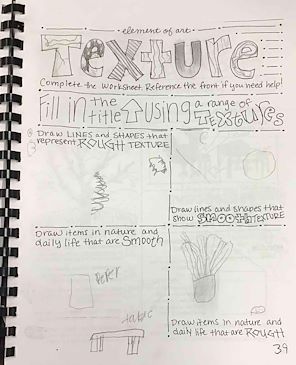 element of art
Texture
Complete the worksheet. Reference the front if you need help!
Fill in the title using a range of Textures
Draw LINES and SHAPES that
represent ROUGH TEXTURE
Draw lines and shapes that
show SMOOTH TEXTURE
Draw items in nature and
daily life that are Smooth
Paper
table
Draw items in nature and
daily life that are ROUGH
39